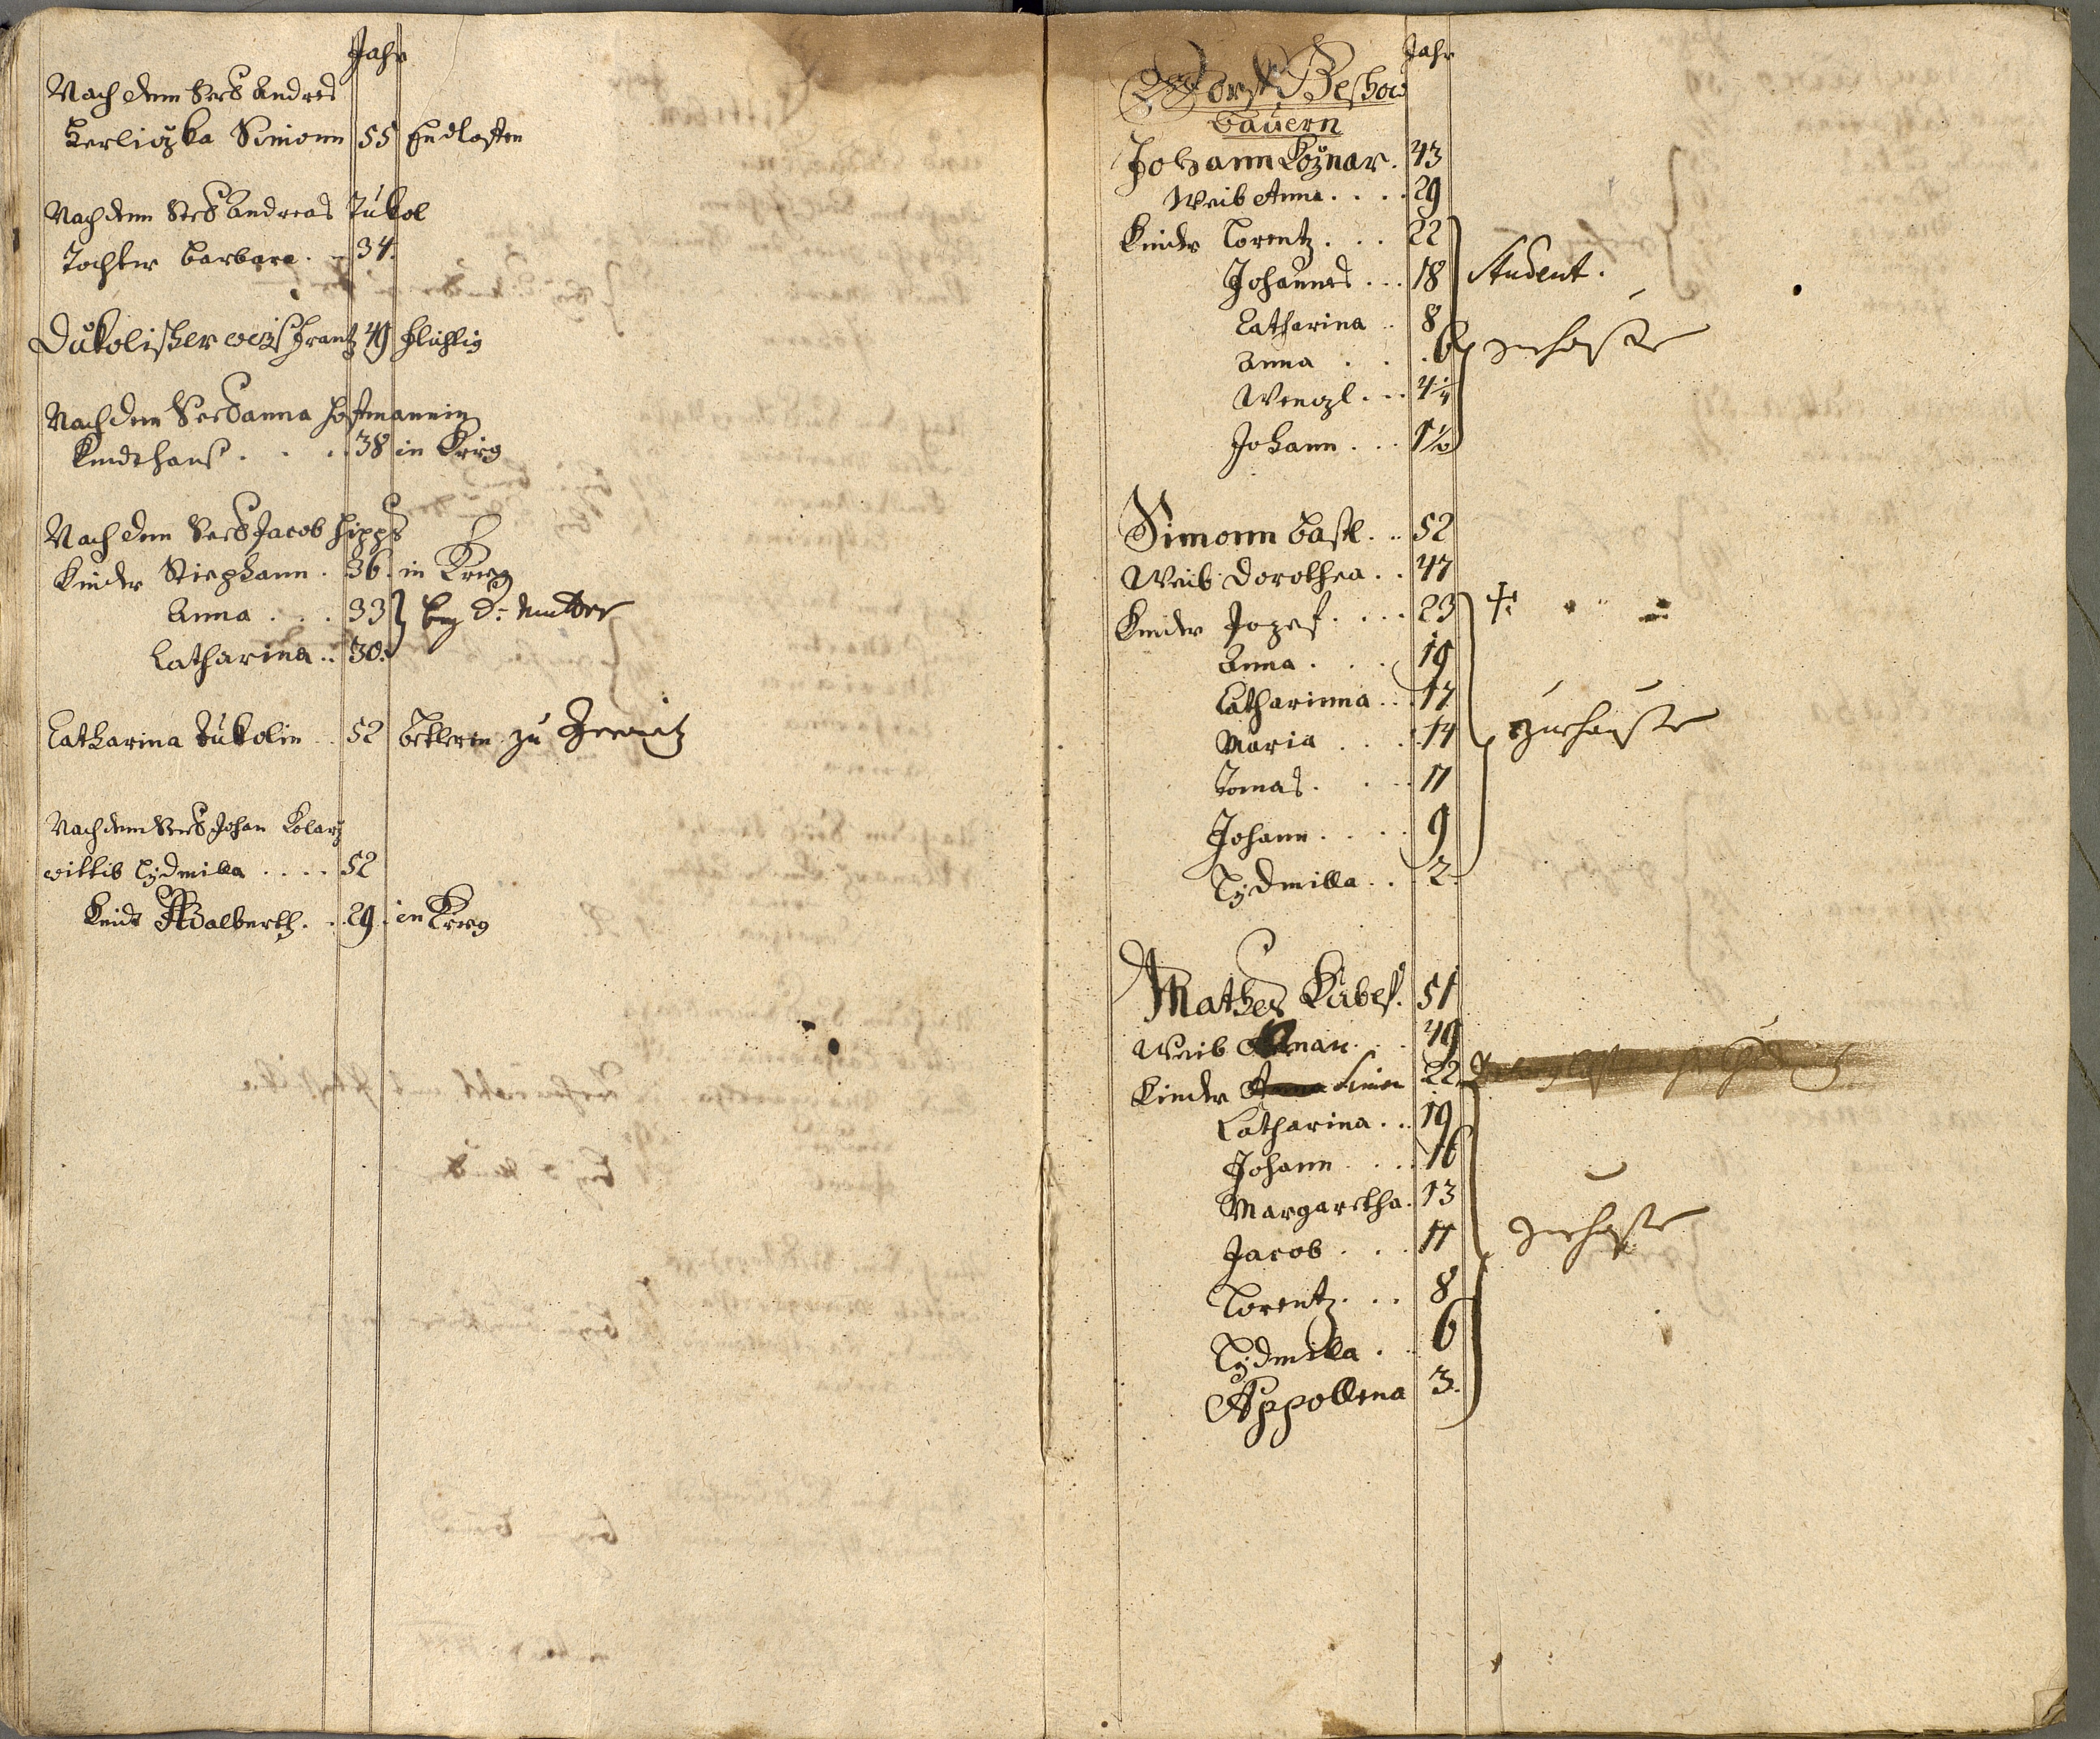 Jahr
Nach dem Verstorb Andres
Kerliczka Simonn 55 Endloffen
Nach dem Verstorb Andreas Dukol
Tochter Barbara . . 34.
Dukolischer Weiß Frantz 49 flichtig
Nach dem Verstorb Anna Hoffmannin
Kindt Hanß . . . 38 in Krieg
Nach dem Verstorb Jacob Hipp
Kinder Stiephann . 36. in Krieg
Anna . . . 33 } bey d: Mutter
Catharina . . 30.
Catharina Dukolin . . 52 zu
Nach dem Verstorb Johan Kolarz
Wittib Lydmilla . . . . 52
Kindt Adalberth . . 29. in Krieg
Jahr
Dorff Beshow
Bauern
Johann Koznar . 43
Weib Anna . . . . 29
Kinder Lorentz . . . 22
Johannes . . . 18 Student .
Catharina . . 8
Anna . . . 6 zu hauße
Wenzl . . . 4 1/4
Johann . . . 1 1/2
Simonn Bastl . . 52
Weib Dorothea . . 47
Kinder Jozef . . . . 23 †
Anna . . . 19
Catharinna . . 17
Maria . . . 14 zu hauße
Tomas . . . 11
Johann . . . . 9
Lydmilla . . . 2.
Mathes Kubeß . 51
Weib . . 49
Kinder Simon 22
Catharina . . . 19
Johann . . . . 16
Margaretha . 13
Jacob . . . 11 zu hauße
Lorentz . . . 8
Lydmilla . . 6
Appollena 3.